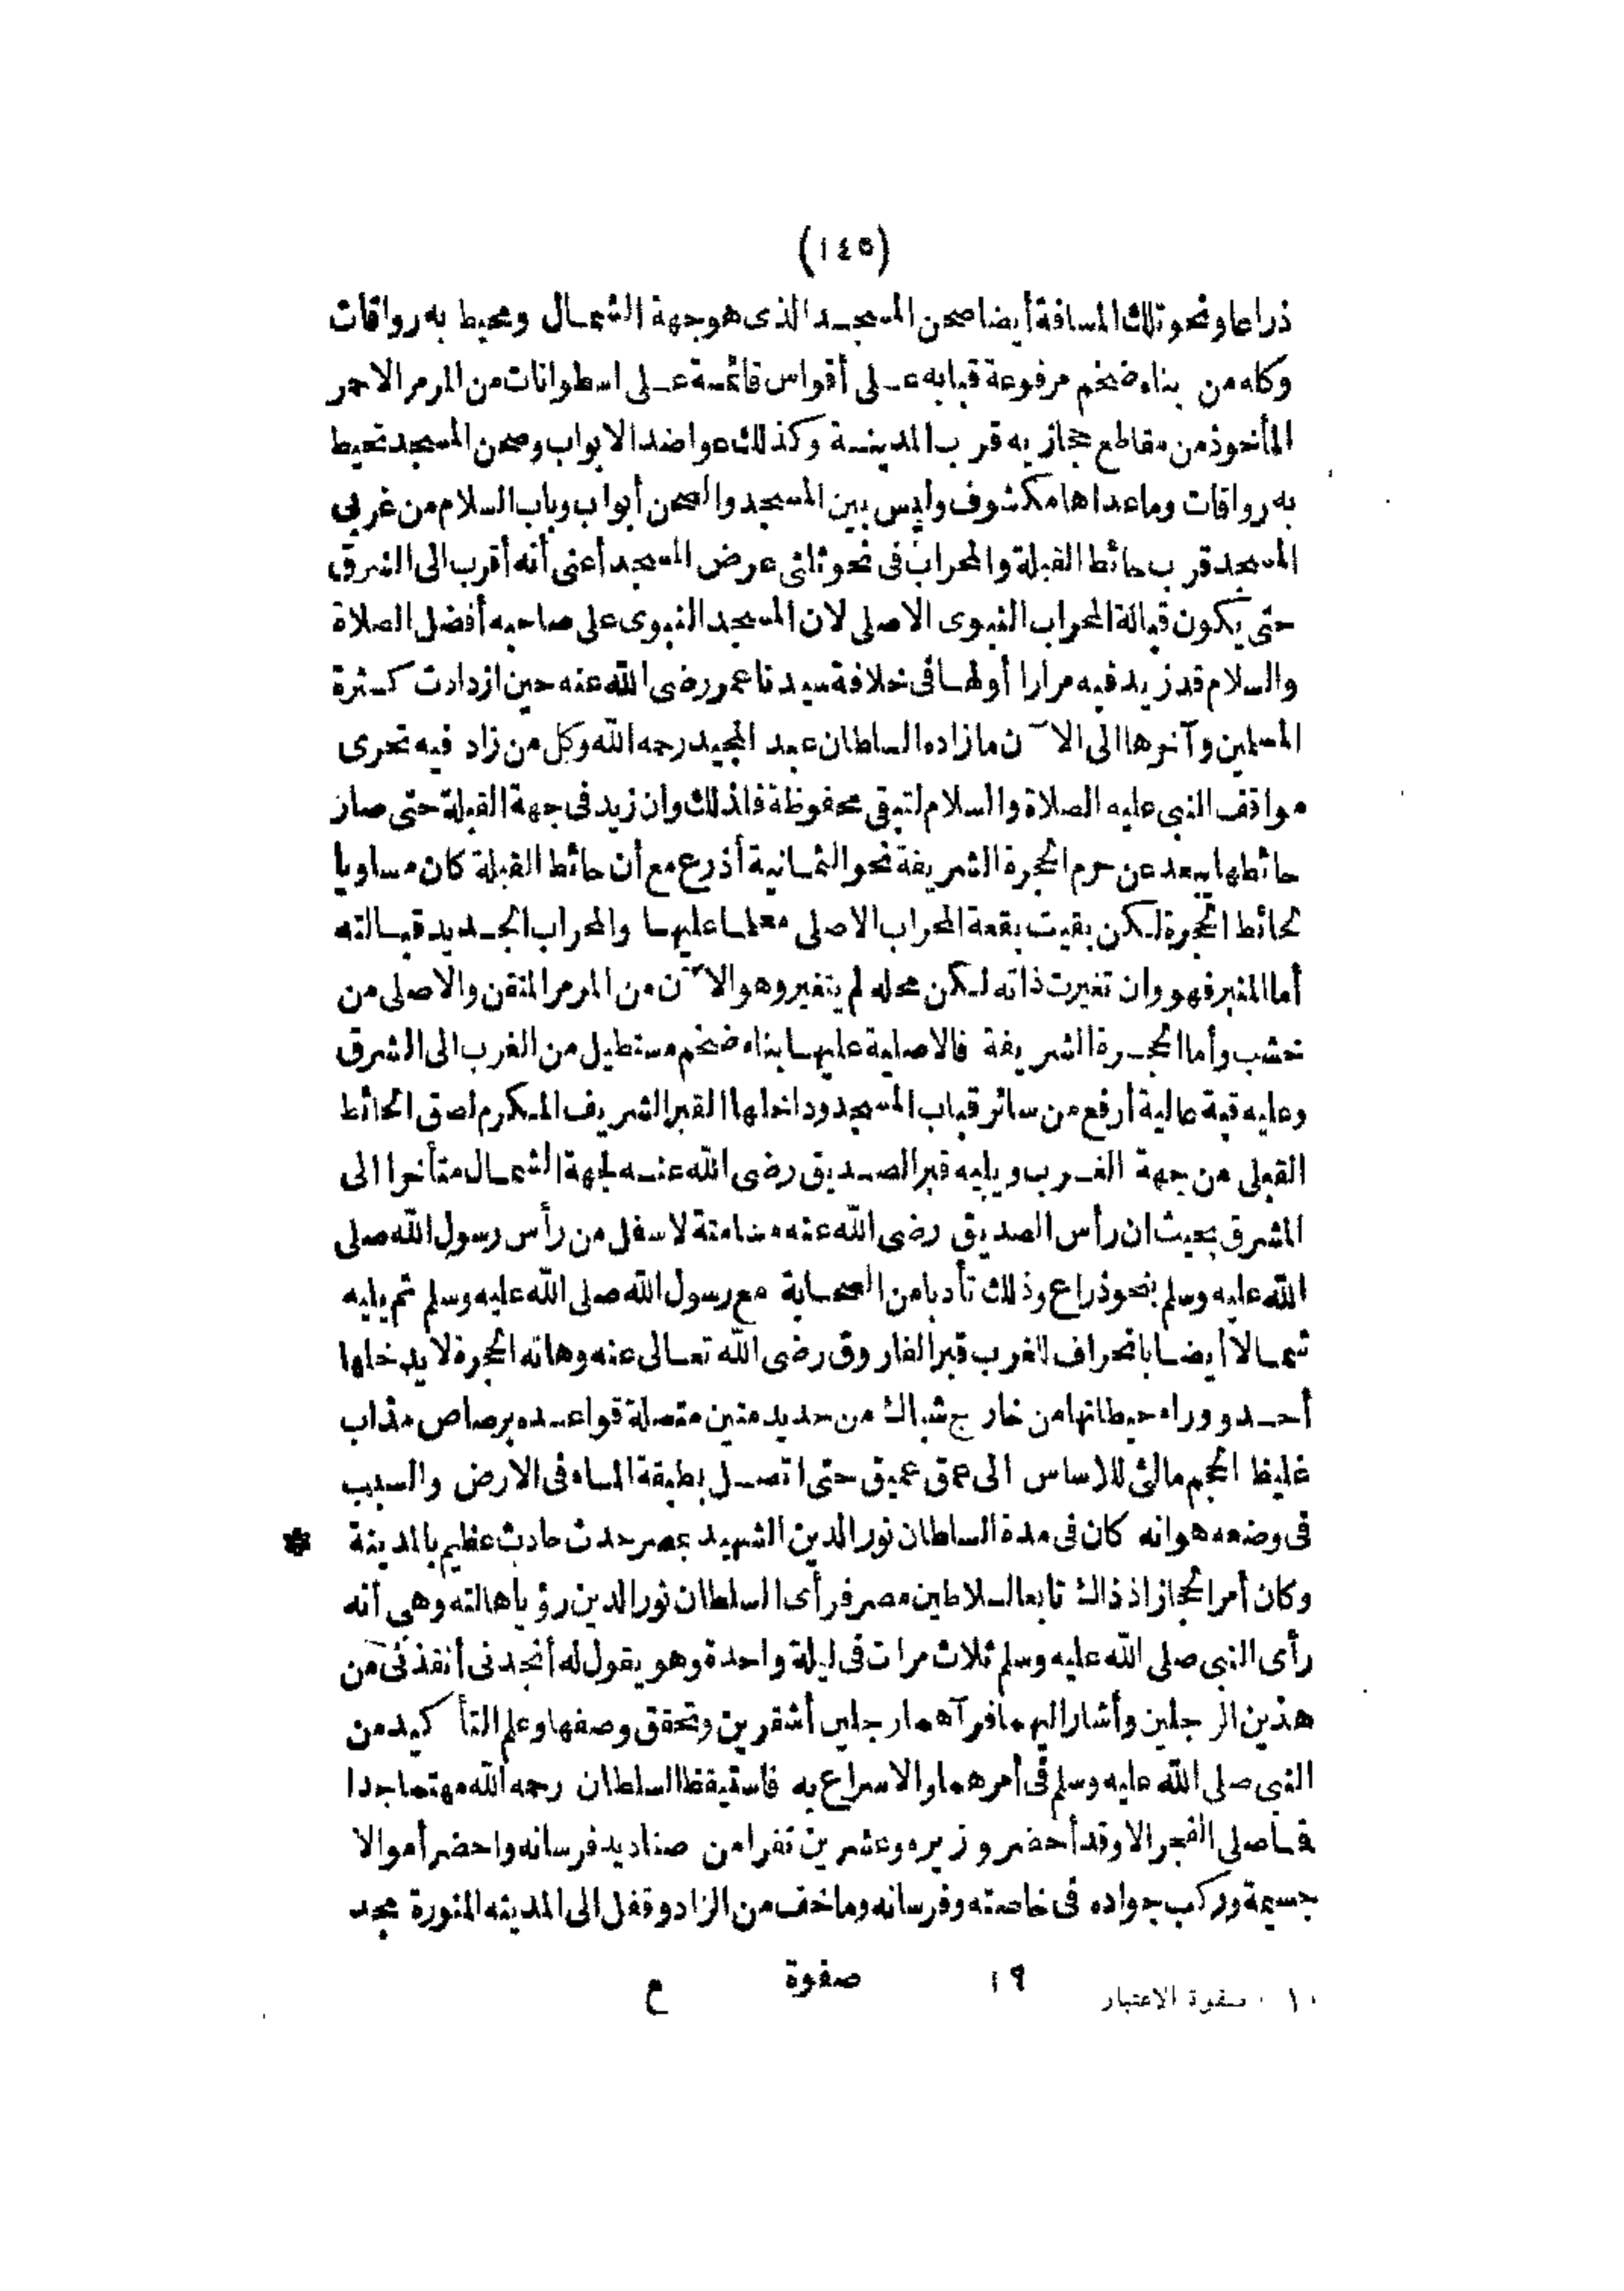 (١٤٥)
ذراعا ونحو تلك المسافة أيضا صحن المسجد الذى هو جهة الشمال ومحيط به رواقات
وكله من بناء ضخم مرفوعة قبابه على أقواس قائمة على اسطوانات من المرمر الاحمر
المأخوذ من مقاطع حجازيه قرب المدينة وكذلك عواضد الابواب وصحن المسجد تحيط
به رواقات وما عداها مكشوف وليس بين المسجد والصحن أبواب وباب السلام من غربي
المسجد قرب حائط القبلة والمحراب فى نحو ثلثى عرض المسجد أعنى أنه أقرب الى الشرق
حتى يكون قبالة المحراب النبوى الاصلى لان المسجد النبوى على صاحبه أفضل الصلاة
والسلام قد زيد فيه مرارا أولها فى خلافة سيدنا عمر رضى الله عنه حين ازدادت كثرة
المسلمين وآخرها الى الآن ما زاده السلطان عبد المجيد رحمه الله وكل من زاد فيه تحرى
مواقف النبى عليه الصلاة والسلام لتبقى محفوظة فلذلك وان زيد فى جهة القبلة حتى صار
حائطها يبعد عن حرم الحجرة الشريفة نحو الثمانية أذرع مع أن حائط القبلة كان مساويا
لحائط الحجرة لكن بقيت بقعة المحراب الاصلى معلما عليها والمحراب الجديد قبالته
أما المنبر فهو وان تغيرت ذاته لكن محله لم يتغير وهو الآن من المرمر المتقن والاصلى من
خشب وأما الحجرة الشريفة فالاصلية عليها بناء ضخم مستطيل من الغرب الى الشرق
وعليه قبة عالية أرفع من سائر قباب المسجد وداخلها القبر الشريف المكرم لصق الحائط
القبلى من جهة الغرب ويليه قبر الصديق رضى الله عنه لجهة الشمال متأخرا الى
المشرق بحيث ان رأس الصديق رضى الله عنه مسامتة لاسفل من رأس رسول الله صلى
الله عليه وسلم بنحو ذراع وذلك تأدبا من الصحابة مع رسول الله صلى الله عليه وسلم ثم يليه
شمالا أيضا بانحراف للغرب قبر الفاروق رضى الله تعالى عنه وهاته الحجرة لا يدخلها
أحد ووراء حيطانها من خارج شباك من حديد متين متصلة قواعده برصاص مذاب
غليظ الحجم مالئ للاساس الى عمق عميق حتى اتصل بطبقة الماء فى الارض والسبب
فى وضعه هو انه كان فى مدة السلطان نور الدين الشهيد بمصر حدث حادث عظيم بالمدينة *
وكان أمر الحجاز اذ ذاك تابعا لسلاطين مصر فرأى السلطان نور الدين رؤيا هالته وهى أنه
رأى النبى صلى الله عليه وسلم ثلاث مرات فى ليلة واحدة وهو يقول له أنجدنى أنقذنى من
هذين الرجلين وأشار اليهما فرآهما رجلين أشقرين وتحقق وصفها وعلم التأكيد من
النبى صلى الله عليه وسلم فى أمرهما والاسراع به فاستيقظ السلطان رحمه الله مهتما جدا
فما صلى الفجر الا وقد أحضر وزيره وعشرين نفرا من صناديد فرسانه واحضر أموالا
جسيمة وركب جواده فى خاصته وفرسانه وما خف من الزاد وقفل الى المدينه المنورة مجد
١٩ صفوة ع
١٠ . صفوة الاعتبار